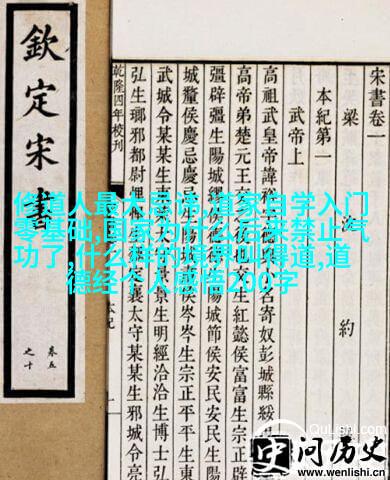 欽定宋書
卷五
之十
宋書卷一
梁
約
本紀第一
武帝上
高祖武皇帝諱裕
名寄奴彭城縣綏
高帝弟楚元王交
生紅懿侯富富生
疆辟疆生陽城
陽城節侯安民安民生陽
城釐侯慶忌慶忌生
侯岑岑生宗正平平生東
武城令某某生東
景生明經洽洽生博士弘
弘生瑯邪都尉悝悝
定襄太守某某生邪城令亮
乾隆四年校刊
本紀
一
修道人最大忌讳,道家自学入门
零基础,国家为什么后来禁止气
功了,什么样的境界叫得道,道
德经个人感悟200字
QuLishi.com
问历史
www.wenlishi.cn